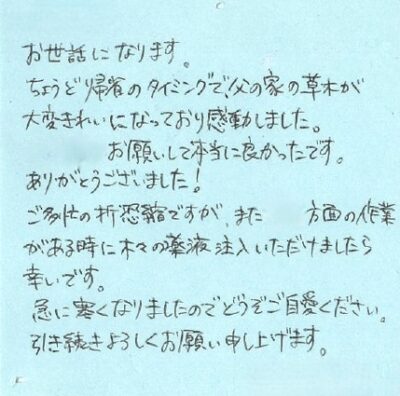 お世話になります。
ちょうど帰省のタイミングで、父の家の草木が
大変きれいになっており感動しました。
お願いして本当に良かったです。
ありがとうございました!
ご多忙の折恐縮ですが、また 方面の作業
がある時に木々の薬液注入いただけましたら
幸いです。
急に寒くなりましたのでどうぞご自愛ください。
引き続きよろしくお願い申し上げます。